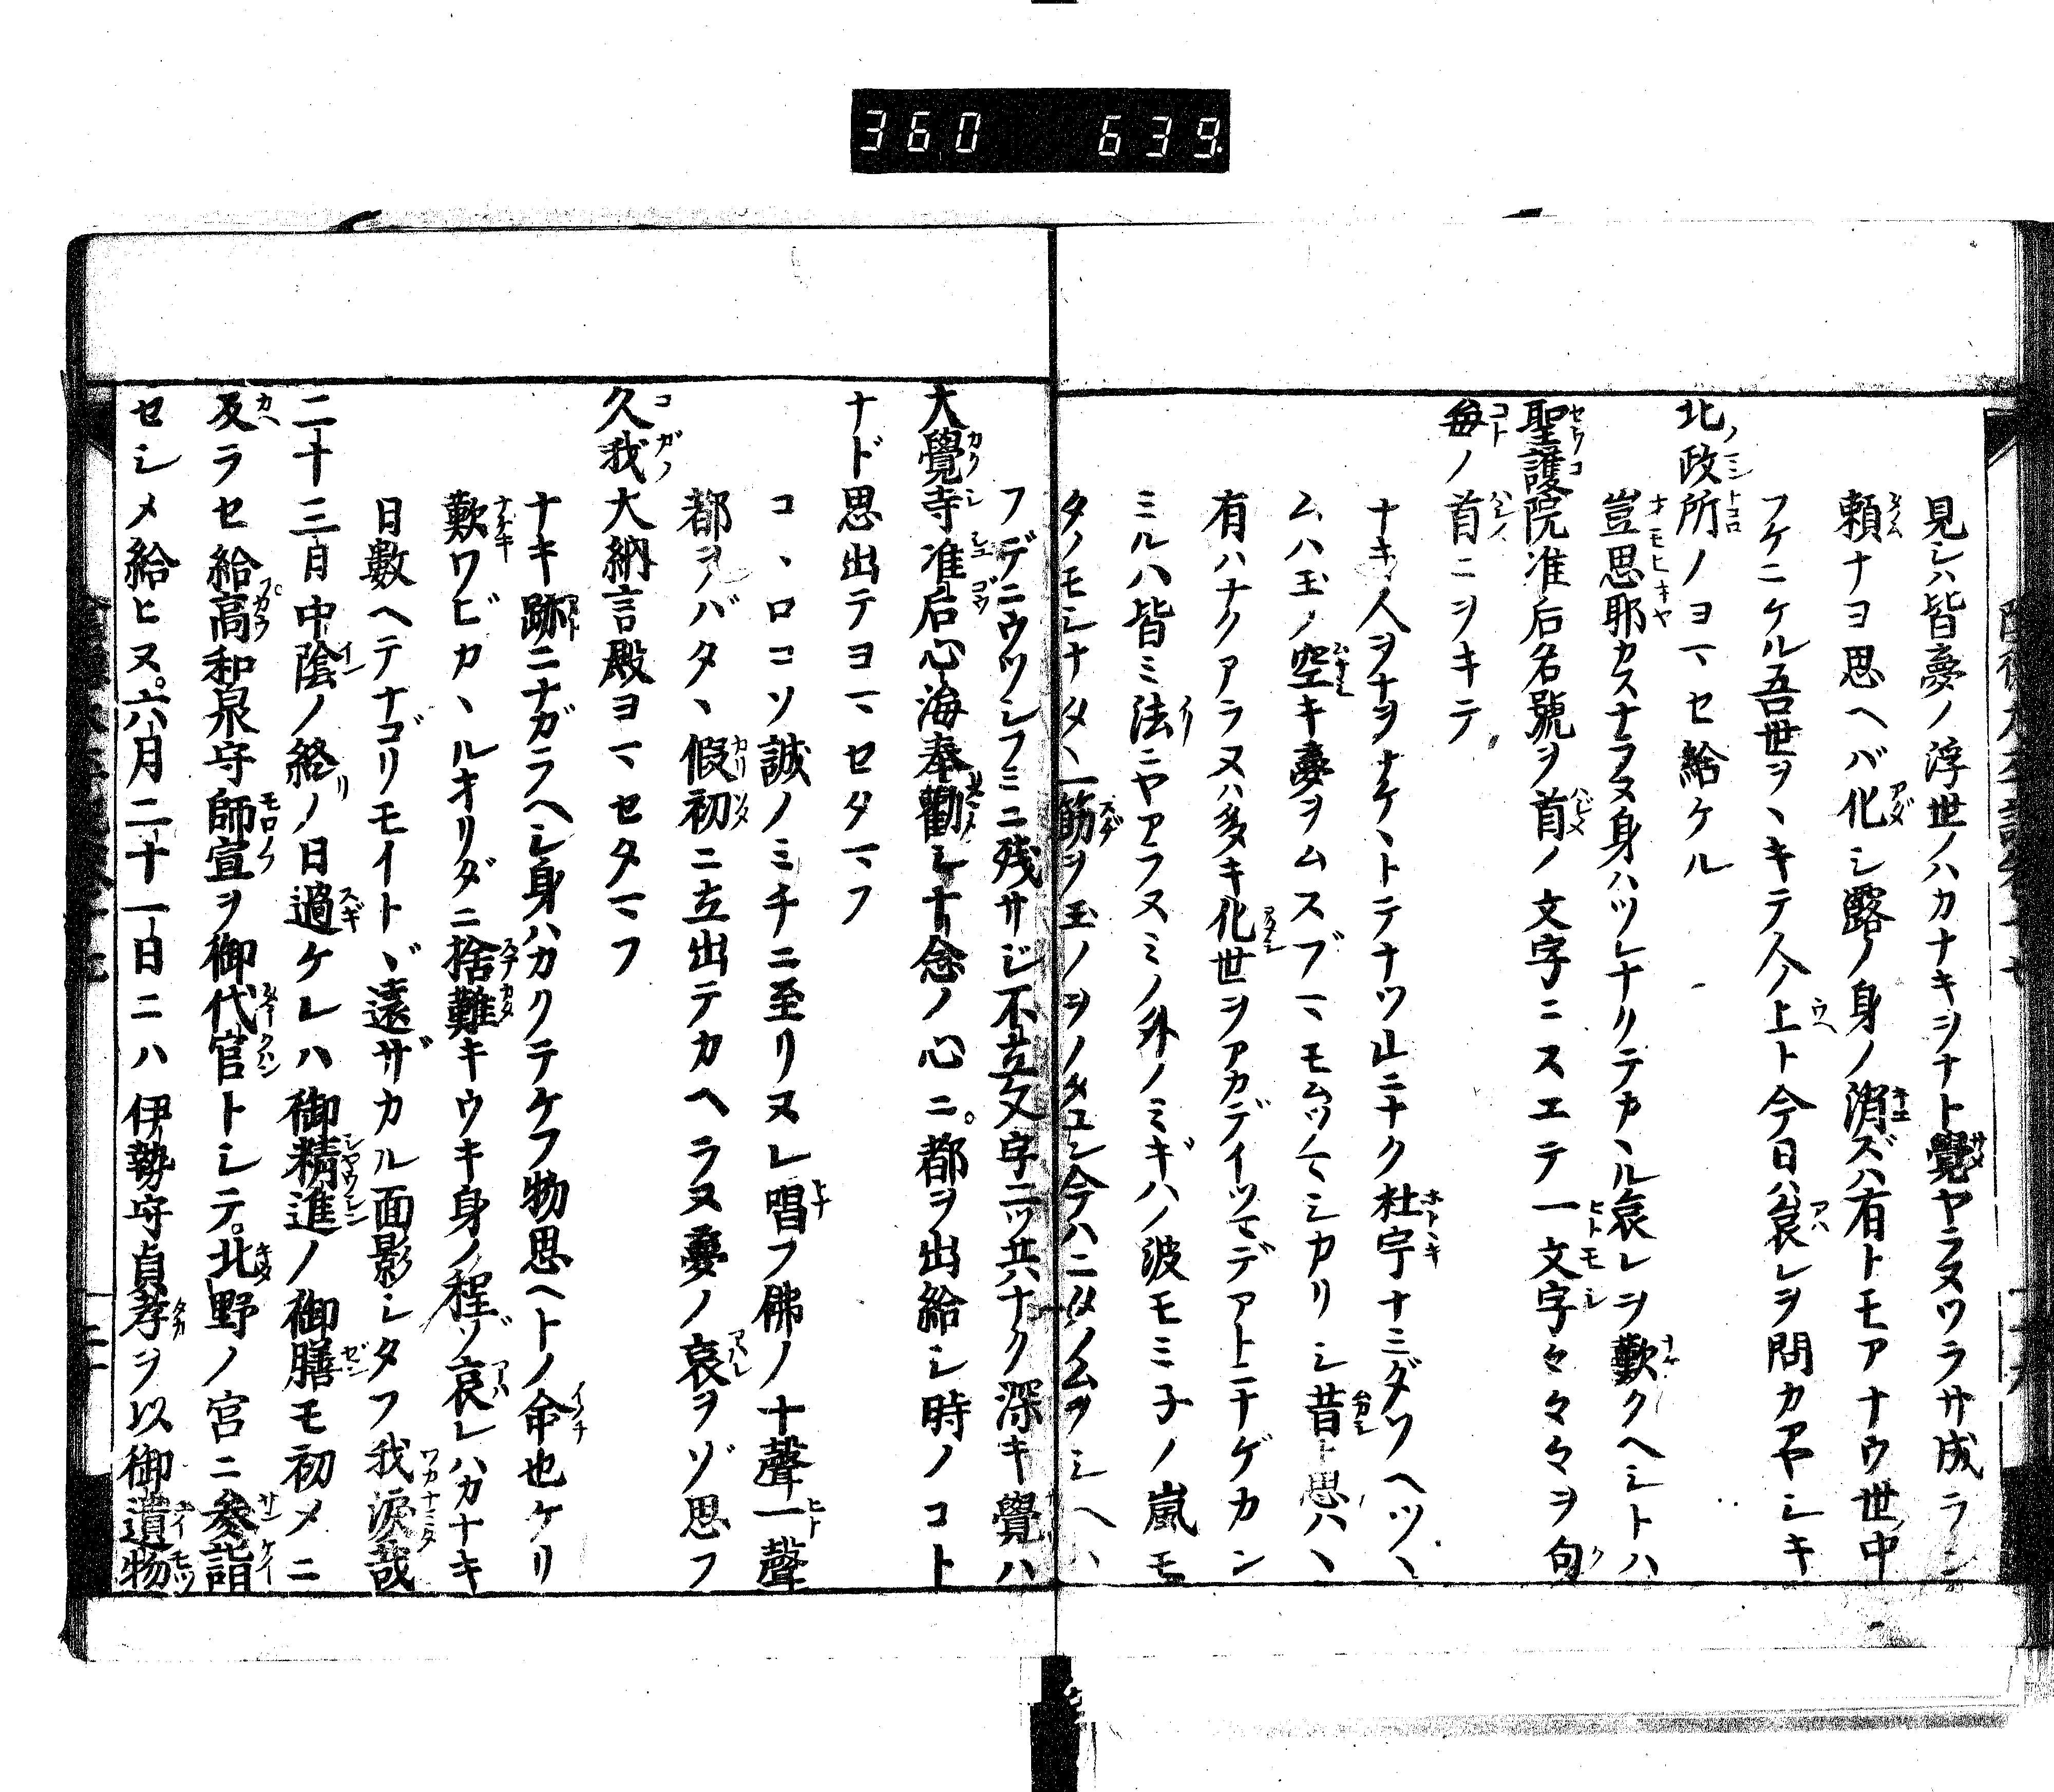 360 639
見シハ皆夢ノ浮世ノハカナキヲナト覺ヤラヌツラサ成ラン
頼ナヨ思ヘバ化シ露ノ身ノ消ズハ有トモアナウ世中
フケニケル吾世ヲヽキテ人ノ上ト今日ハ哀レヲ問カアヤシキ
北政所ノヨマセ給ケル
豈思耶カスナラヌ身ハツレナクテカヽル哀レヲ歎クヘシトハ
聖護院准后名號ヲ首ノ文字ニスエテ一文字々々々々ヲ句
毎ノ首ニヲキテ
ナキ人ヲナヲナケヽトテナツ山ニナク杜宇ナミダソヘツヽ
ムハ玉ノ空キ夢ヲムスブマモムツマシカリシ昔ト思ハヽ
有ハナクアラヌハ多キ化世ヲアカデイツマデアトニナゲカン
ミルハ皆ミ法ニヤアラヌミノ外ノミギハノ波モミ子ノ嵐モ
タノモシナタヽ一筋ヲ玉ノヲノタユシ今ハニタノムヲシヘハ
フデニウツシフミニ残サジ不立文字二ツ共ナク深キ覺ハ
大覺寺准后心海奉勸シ十念ノ心ニ。都ヲ出給シ時ノコト
ナド思出テヨマセタマフ
コヽロコソ誠ノミチニ至リヌレ唱フ佛ノ十聲一聲
都ヲバタヽ假初ニ立出テカヘラヌ夢ノ哀ヲゾ思フ
久我大納言殿ヨマセタマフ
ナキ跡ニナガラヘシ身ハカクテケフ物思ヘトノ命也ケリ
歎ワビカヽルオリダニ捨難キウキ身ノ程ゾ哀レハカナキ
日數ヘテナゴリモイトヾ遠ザカル面影シタフ我淚哉
二十三日中陰ノ終ノ日過ケレハ御精進ノ御膳モ初メニ
及ラセ給高和泉守師宣ヲ御代官トシテ。北野ノ宮ニ參詣
セシメ給ヒヌ。六月二十一日ニハ伊勢守貞孝ヲ以御遺物